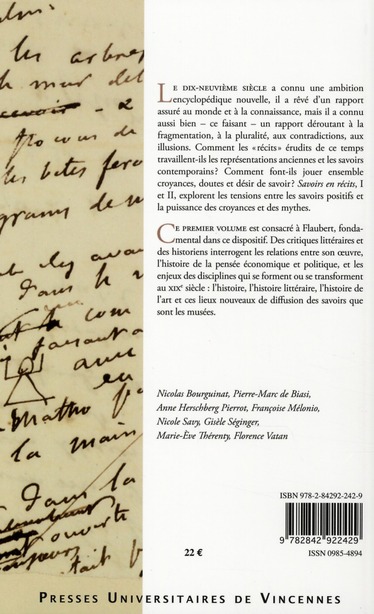 les arbres
le mur de
- 2
les bêtes fero
dans le
la com
la main
dans la
LE DIX-NEUVIÈME SIÈCLE a connu une ambition
encyclopédique nouvelle, il a rêvé d'un rapport
assuré au monde et à la connaissance, mais il a connu
aussi bien – ce faisant – un rapport déroutant à la
fragmentation, à la pluralité, aux contradictions, aux
illusions. Comment les «récits» érudits de ce temps
travaillent-ils les représentations anciennes et les savoirs
contemporains? Comment font-ils jouer ensemble
croyances, doutes et désir de savoir? Savoirs en récits, I
et II, explorent les tensions entre les savoirs positifs et
la puissance des croyances et des mythes.
CE PREMIER VOLUME est consacré à Flaubert, fonda-
mental dans ce dispositif. Des critiques littéraires et
des historiens interrogent les relations entre son œuvre,
l'histoire de la pensée économique et politique, et les
enjeux des disciplines qui se forment ou se transforment
au XIXe siècle : l'histoire, l'histoire littéraire, l'histoire de
l'art et ces lieux nouveaux de diffusion des savoirs que
sont les musées.
Nicolas Bourguinat, Pierre-Marc de Biasi,
Anne Herschberg Pierrot, Françoise Mélonio,
Nicole Savy, Gisèle Séginger,
Marie-Ève Thérenty, Florence Vatan
ISBN 978-2-84292-242-9
9 782842 922429
22 €
ISSN 0985-4894
PRESSES UNIVERSITAIRES DE VINCENNES